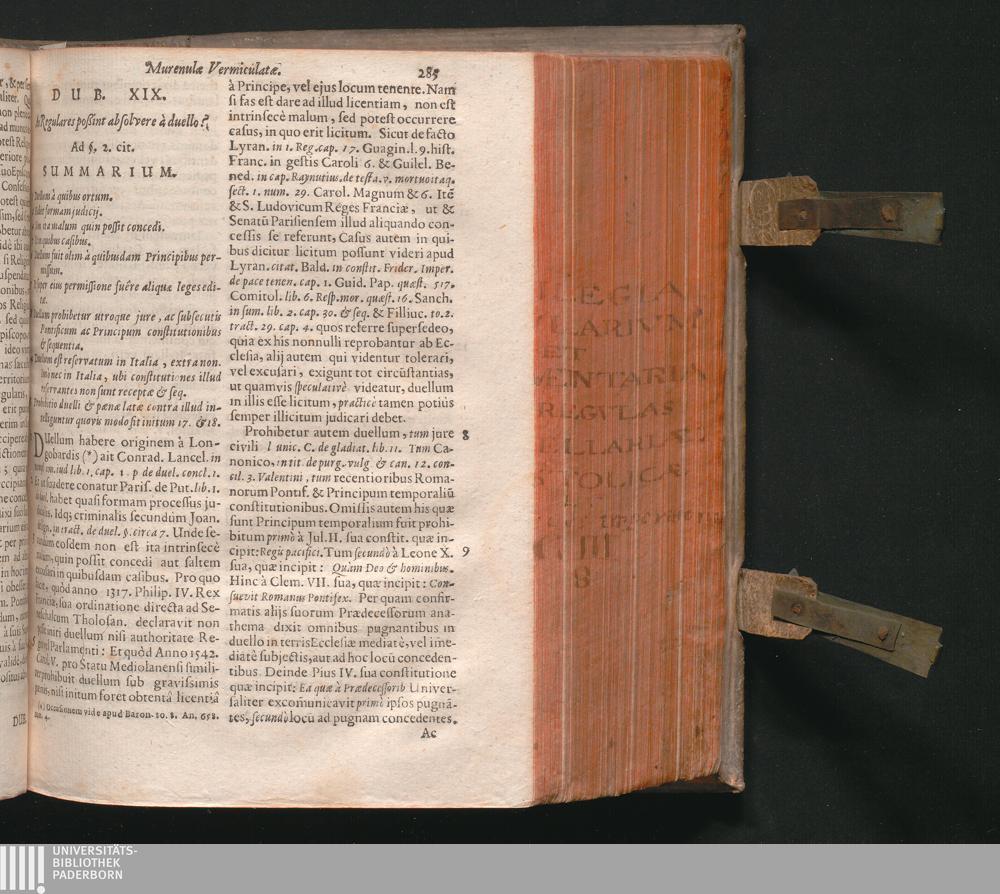 Murenulæ Vermiculatæ. 285
DUB. XIX.
Regulares possint absolvere à duello?
Ad §. 2. cit.
SUMMARIUM.
à quibus ortum.
formam judicij.
ita malum quin possit concedi.
quibus casibus.
fuit olim à quibusdam Principibus per-
missum.
eius permissione fuêre aliquæ leges edi-
tæ.
prohibetur utroque jure, ac subsecutis
Pontificum ac Principum constitutionibus
& sequentia.
est reservatum in Italia, extra non.
nec in Italia, ubi constitutiones illud
reservantes non sunt receptæ & seq.
duelli & pœnæ latæ contra illud in-
telliguntur quovis modo sit initum 17. & 18.
DUellum habere originem à Lon-
gobardis (*) ait Conrad. Lancel. in
iud lib. 1. cap. 1. p de duel. concl. 1.
suadere conatur Paris. de Put. lib. 1.
habet quasi formam processus ju-
Idq; criminalis secundùm Joan.
in tract. de duel. §. circa 7. Unde se-
eosdem non est ita intrinsecè
quin possit concedi aut saltem
in quibusdam casibus. Pro quo
quòd anno 1317. Philip. IV. Rex
sua ordinatione directa ad Se-
Tholosan. declaravit non
duellum nisi authoritate Re-
Parlamenti: Et quòd Anno 1542.
V. pro Statu Mediolanensi simili-
prohibuit duellum sub gravissimis
nisi initum foret obtentâ licentiâ
(*) Occasionem vide apud Baron. to. 8. An. 658.
à Principe, vel ejus locum tenente. Nam
si fas est dare ad illud licentiam, non est
intrinsecè malum, sed potest occurrere
casus, in quo erit licitum. Sicut de facto
Lyran. in 1. Reg. cap. 17. Guagin. l. 9. hist.
Franc. in gestis Caroli 6. & Guilel. Be-
ned. in cap. Raynutius. de testa. v. mortuo itaq.
sect. 1. num. 29. Carol. Magnum & 6. Itē
& S. Ludovicum Reges Franciæ, ut &
Senatū Parisiensem illud aliquando con-
cessis se referunt, Casus autem in qui-
bus dicitur licitum possunt videri apud
Lyran. citat. Bald. in constit. Frider. Imper.
de pace tenen. cap. 1. Guid. Pap. quæst. 517.
Comitol. lib. 6. Resp. mor. quæst. 16. Sanch.
in sum. lib. 2. cap. 30. & seq. & Filliuc. to. 2.
tract. 29. cap. 4. quos referre supersedeo,
quia ex his nonnulli reprobantur ab Ec-
clesia, alij autem qui videntur tolerari,
vel excusari, exigunt tot circūstantias,
ut quamvis speculativè videatur, duellum
in illis esse licitum, practicè tamen potiùs
semper illicitum judicari debet.
Prohibetur autem duellum, tum jure 8
civili l unic. C. de gladiat. lib. 11. Tum Ca-
nonico, in tit de purg. vulg & can. 12. con-
cil. 3. Valentini, tum recentioribus Roma-
norum Pontif. & Principum temporaliū
constitutionibus. Omissis autem his quæ
sunt Principum temporalium fuit prohi-
bitum primò à Jul. II. sua constit. quæ in-
cipit: Regis pacifici. Tum secundò à Leone X. 9
sua, quæ incipit: Quàm Deo & hominibus.
Hinc à Clem. VII. sua, quæ incipit: Con-
suevit Romanus Pontifex. Per quam confir-
matis alijs suorum Prædecessorum ana-
thema dixit omnibus pugnantibus in
duello in terris Ecclesiæ mediatè, vel ime-
diatè subjectis, aut ad hoc locū conceden-
tibus. Deinde Pius IV. sua constitutione
quæ incipit: Ea quæ à Prædecessorib Univer-
saliter excomunicavit primò ipsos pugnā-
tes, secundò locū ad pugnam concedentes.
Ac
UNIVERSITÄTS-
BIBLIOTHEK
PADERBORN